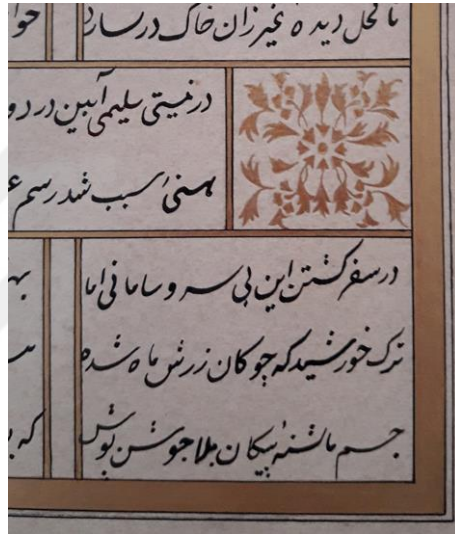 ما کحل دیده غیر زان خاک در سازد
در نیستی سلیمی آیین در
سبب شد رسم
در سفر گشتن این بی سر و سامانی اما
ترک خورشید که چوکان زرش ماه شده
جسم ما تشنهٔ پیکان بلا جوشن پوش